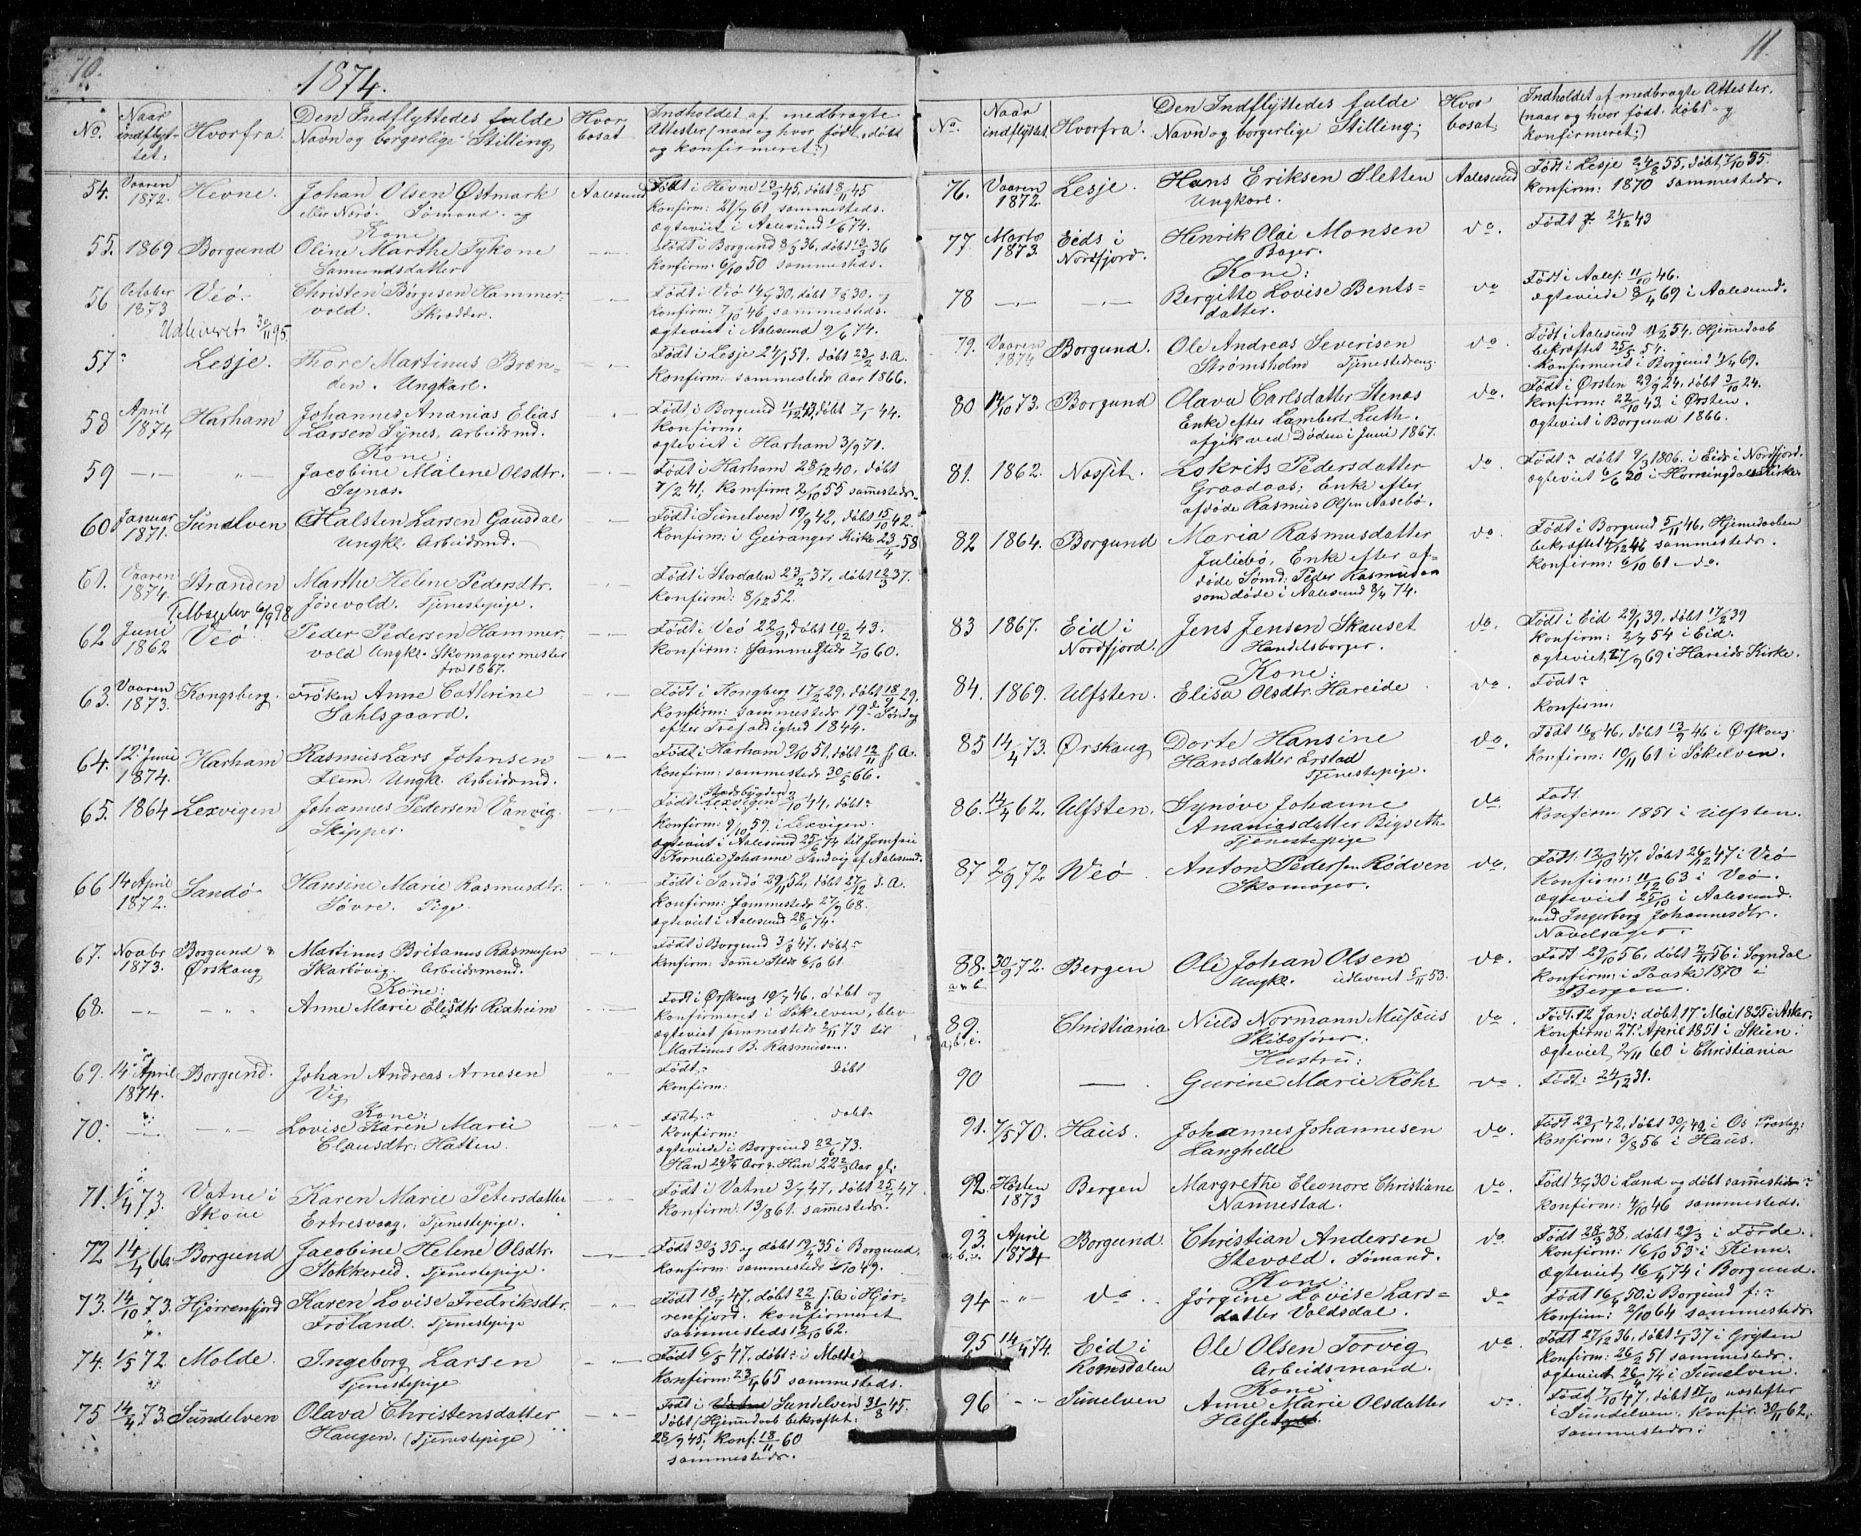 10.
1874.
No.
Naar indflyttet.
Hvorfra.
Den Indflyttedes fulde Navn og borgerlige Stilling.
Hvor bosat
Indholdet af medbragte Attester (naar og hvor født, døbt og konfirmeret.)
54. Vaaren 1872. Hevne. Johan Olsen Østmark Aalesund Født i Hevne 13/9 45, døbt 8/11 45
eller Norø. Sømand. og konfirm: 21/7 61 sammesteds.
Kone ægteviet i Aalesund 1/6 74.
55. 1869 Borgund Oline Marthe Tykone Født i Borgund 8/2 36, døbt 13/3 36
Samundsdatter konfirm: 6/10 50 sammesteds.
56 October 1873 Veø. Christen Børgesen Hammer- Født i Veø 14/7 30, døbt 7/8 30.
vold. Skrædder. konfirm: 7/10 46 sammesteds.
Udleveret 30/11 95. ægteviet i Aalesund 9/6 74.
57. Lesje. Thore Martinus Bræn- Født i Lesje 24/1 51, døbt 23/2 s.A.
den. Ungkarl. konfirm: sammesteds Aar 1866.
58 April 1874 Harham Johannes Ananias Elias Født i Borgund 11/12 43, døbt 7/1 44.
Larsen Synes, Arbeidsmd. konfirm:
Kone: ægteviet i Harham 3/9 71.
59 -"- "- Jacobine Malene Olsdtr. Født i Harham 23/12 40, døbt
Synes. 7/2 41; konfirm 2/10 55 sammesteds.
60 Januar 1871. Sunelven Halsten Larsen Gausdal Født i Sunelven 19/9 42, døbt 15/10 42.
Ungkl. Arbeidsmd. konfirm: i Geiranger Kirke 23/4 58
61. Vaaren 1874. Stranden Marthe Helene Pedersdtr. Født i Stordalen 23/2 37, døbt 12/3 37.
Jøsevold. Tjenestepige. konfirm: 8/12 52.
62 Juni 1862 Veø Peder Pedersen Hammer- Født i Veø 22/9, døbt 10/12 43.
vold Ungkl. Skomagermester konfirm: Sammesteds 7/10 60.
fra 1867.
63. Vaaren 1873. Kongsberg. Frøken Anne Cathrine Født i Kongberg 17/2 29, døbt 18/9 29.
Sahlsgaard. konfirm: sammesteds 19de Søndag
efter Trefoldighed 1844.
64. 12. Juni 1874. Harham Rasmus Lars Johnsen Født i Harham 9/10 51, døbt 12/11 s.A.
Flem: Ungkl. Arbeidsmd. konfirm: sammesteds 30/5 66.
65. 1864 Lexvigen Johannes Pedersen Vanvig. Stadsbygden
Født i Lexvigen 2/10 44, døbt
Skipper. konfirm: 9/10 59. i Lexvigen.
ægteviet i Aalesund 25/6 74 til Jomfrue
Kornelie Johanne Sandvig af Aalesund.
66 14 April 1872. Sandø Hansine Marie Rasmusdtr. Født i Sandø 29/11 52, døbt 27/12 s.A.
Søvre. Pige. konfirm: Sammesteds 27/9 68.
ægteviet i Aalesund 28/6 74.
67. Novbr 1873. Borgund & Ørskaug Martinus Britanus Rasmusen Født i Borgund 3/8 47. døbt
Skarbøvig. Arbeidsmand. konfirm: samme Sted 6/10 61.
Kone:
68. Anne Marie Elisdtr Rixheim Født i Ørskoug 19/7 46, døbt og
konfirmeret i Søkelven, blev
ægteviet sammesteds 2/11 73 til
Martinus B. Rasmusen.
69. 14 April 1874. Borgund. Johan Andreas Arnesen Født: døbt
Vig konfirm:
Kone:
70. Lovise Karen Marie Født: døbt
Clausdtr: Hatten. konfirm:
ægteviede i Borgund 22/6 73.
Han 24 3/4 Aar & Hun 22 2/3 Aar gl:
71. 1/4 73. Vatne i Skoue Karen Marie Petersdatter Født i Vatne 3/7 47, døbt 25/7 47.
Ertresvaag, Tjenestepige. konfirm: 13/8 61. sammesteds.
72 14/4 66. Borgund Jacobine Helene Olsdtr. Født 30/3 35 og døbt 19/4 35 i Borgund,
Stokkereid. Tjenestepige. konfirm: sammesteds 7/10 49.
73. 14/10 73. Hjørrenfjord Karen Lovise Fredriksdtr. Født 18/7 47, døbt 22/8 s.A i Hjør-
Frøland. Tjenestepige renfjord. konfirmeret
sammesteds 12/10 62.
74. 1/5 72 Molde. Ingeborg Larsen Født 6/5 47, døbt i Molde
Tjenestepige konfirm: 23/4 65 sammesteds.
75 14/4 73. Sundelven Olava Christensdatter Født i Sundelven 31/8 45.
Haugen. (Tjenestepige) døbt / Hjemmedaab bekræftet:
28/9 45; konf: 18/11 60
sammesteds.
11.
No.
Naar indflyttet.
Hvorfra.
Den Indflyttedes fulde Navn og borgerlige Stilling.
Hvor bosat
Indholdet af medbragte Attester. (naar og hvor født. døbt og konfirmeret.)
76. Vaaren 1872. Lesje. Hans Eriksen Sletten Aalesund Født i Lesje 24/8 55, døbt 7/10 55.
Ungkarl. konfirm: 1870 sammesteds.
77. Marts 1873. Eids i Nordfjord. Henrik Olai Monsen do. Født 24/12 43
Bager.
Kone:
78 Bergitte Lovise Bents- do Født i Aales: 11/10 46.
datter. ægteviede 8/4 69 i Aalesund.
79. Vaaren 1874 Borgund. Ole Andreas Severisen do. Født i Aalesund 11/2 54. Hjemmedaab
Strømsholm Tjenestedreng. bekræftet 25/5 54.
konfirmeret i Borgund 4/4 69.
80 14/10 73. Borgund Olava Carlsdatter Stenes do. Født i Ørsten 29/9 24, døbt 3/10 24.
Enke efter Lambert Luth. konfirm: 22/10 43. i Ørsten.
afgik ved Døden i Juni 1867. ægteviet i Borgund 1866.
81. 1862. Pedersdatter do. Født døbt 9/3 1806. i Eids i Nordfjord.
Graadaas; Enke efter ægteviet 6/6 20 i Horningdals Kirke
afdøde Rasmus Olsen Aasebø.
82 1864. Borgund Maria Rasmusdatter do. Født i Borgund 5/11 46, Hjemedaaben
Juliebø, Enke efter af- bekræftet 4/12 46 sammesteds.
døde Sømd: Peder Rasmusen konfirm: 6/10 61 - do.
som døde i Aalesund 8/4 74.
83 1867. Eid i Nordfjord. Jens Jensen Skauset do. Født i Eid 29/1 39, døbt 17/2 39
Handelsborger. konfirm: 2/7 54 i Eid.
Kone: ægteviet 17/9 69 i Hareids Kirke.
84. 1869. Ulfsten. Elisa Olsdtr. Hareide do. Født
konfirm.
85 14/4 73. Ørskaug Dorte Hansine do. Født 16/8 46, døbt 13/9 46 i Ørskoug.
Hansdatter Erstad konfirm: 10/11 61 i Søkelven.
Tjenestepige.
86. 14/4 62. Ulfsten. Synøve Johanne do Født.
Ananiasdatter Bigseth konfirm 1851 i Ulfsten.
Tjenestepige
87 2/9 72 Veø Anton Pedersen Rødven do. Født: 13/10 47, døbt 26/12 47 i Veø
Skomager. konfirm: 11/12 63 i Veø.
ægteviet 25/10 i Aalesund
med Ingeborg Johannesdtr.
88. 30/9 72. Bergen Ole Johan Olsen do. Født 29/10 56, døbt 2/11 56 i Sogndal
a & b Ungkl. udleveret 5/11 53. konfirm: i Paaske 1870 i
Bergen.
89. Christiania Niels Normann Musæus do. Født: 12 Jan: døbt 17. Mai 1835 i Asker.
a. b. c. Skibsfører. konfirm 27. April 1851 i Skien.
Hustru: ægteviet 2/11 60 i Christiania
90 — Gurine Marie Röhr do. Født: 24/12 31.
91. 7/5 70. Haus. Johannes Johannesen do. Født 23/1 42, døbt 30/1 42 i Os Præsteg:
Langhelle konfirm: 3/8 56 i Haus.
92. Høsten 1873 Bergen Margrethe Eleonore Christiane do. Født 4/7 30 i Land og døbt sammesteds
Nannestad. konfirm: 4/10 46 sammesteds.
93. April 1874 Borgund Christian Andersen do. Født 28/3 38, døbt 29/3 i Førde.
a. b. c. Stevold. Sømand. konfirm: 16/10 53 i Kinn.
Kone: ægteviet 16/4 74 i Borgund.
94 -"- do. Jørgine Lovise Lars- do Født 16/4 50. i Borgund
datter Valdsdal. konfirm: 2/10 64 sammesteds
95 14/4 74. Eid i Romsdalen Ole Olsen Torvig do. Født 27/12 36, døbt 1/1 37 i Grytten
Arbeidsmand. konfirm: 26/2 51 sammesteds.
Kone ægteviet 26/4 74 i Sunelven.
96 Sunelven Anne Marie Olsdatter do. Født 7/10 47, døbt 17/10 næstefter
i Sundelven. konfir: 30/11 62,
sammesteds.